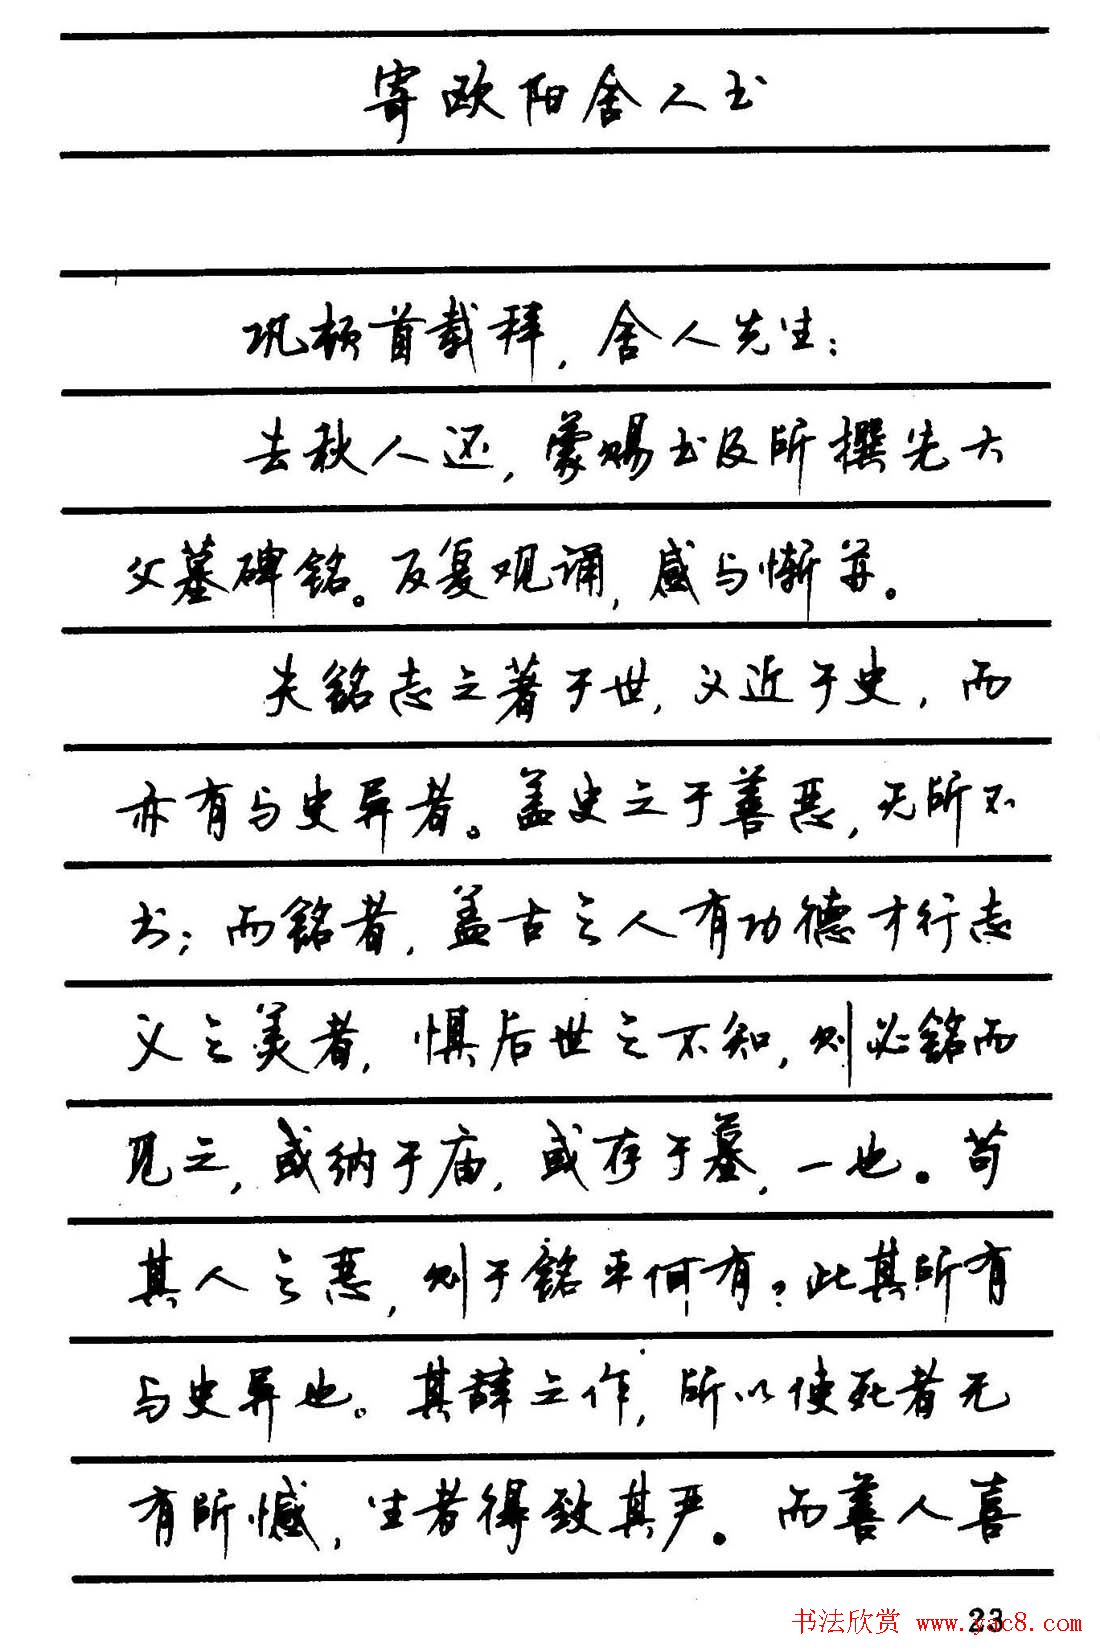 寄欧阳舍人书
巩顿首载拜，舍人先生：
去秋人还，蒙赐书及所撰先大
父墓碑铭。反复观诵，感与惭并。
夫铭志之著于世，义近于史，而
亦有与史异者。盖史之于善恶，无所不
书；而铭者，盖古之人有功德才行志
义之美者，惧后世之不知，则必铭而
见之，或纳于庙，或存于墓，一也。苟
其人之恶，则于铭乎何有？此其所有
与史异也。其辞之作，所以使死者无
有所憾，生者得致其严。而善人喜
23
书法欣赏 www.yac8.com